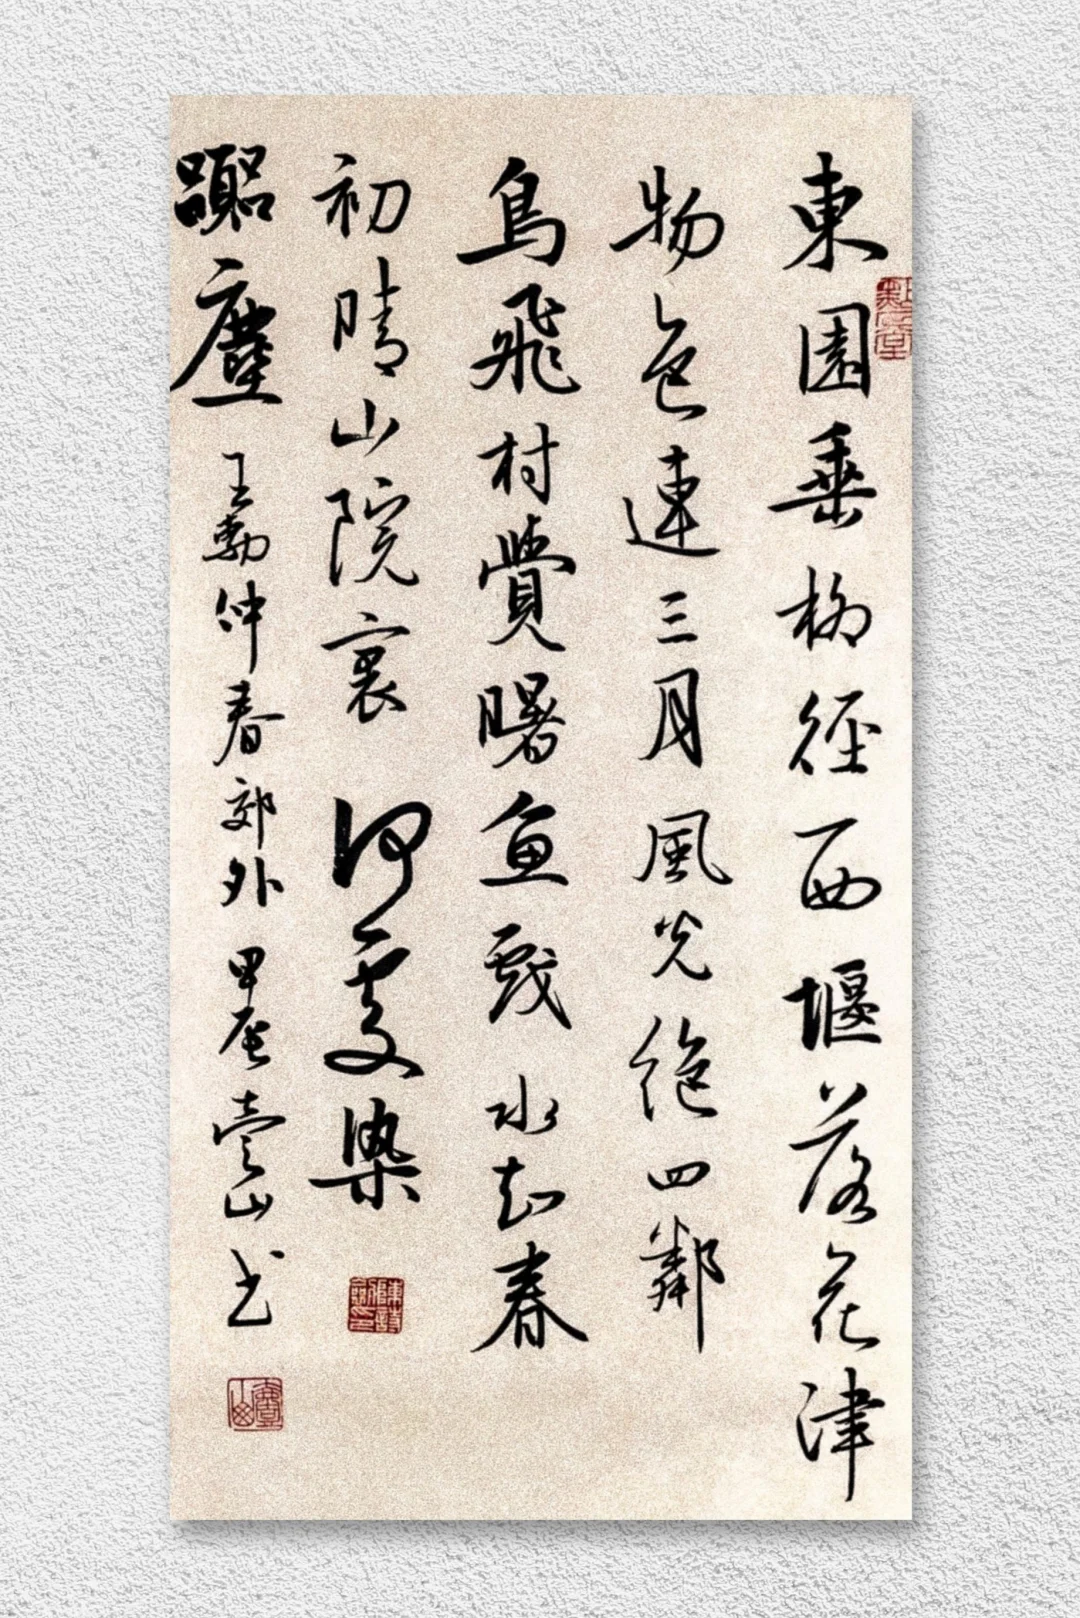 東園垂柳徑西堰落花津
物色連三月風光絕四鄰
鳥飛村覺曙魚戲水知春
初晴山院裏何處染
囂塵 王勃仲春郊外 甲辰 山书